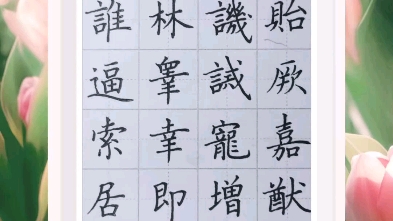 貽厥嘉猷
譏誡寵增
林幸即
誰逼索居